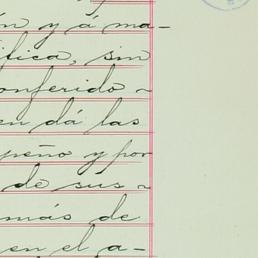 ón y á ma-
ífica, sin
onferido
en dá las
peño y por
de sus
más de
en el a-